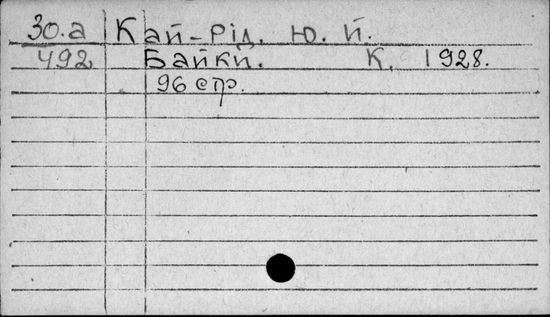 30.а Кай-Рід. Ю. Й.
492 Байки. К. 1928.
96 стр.